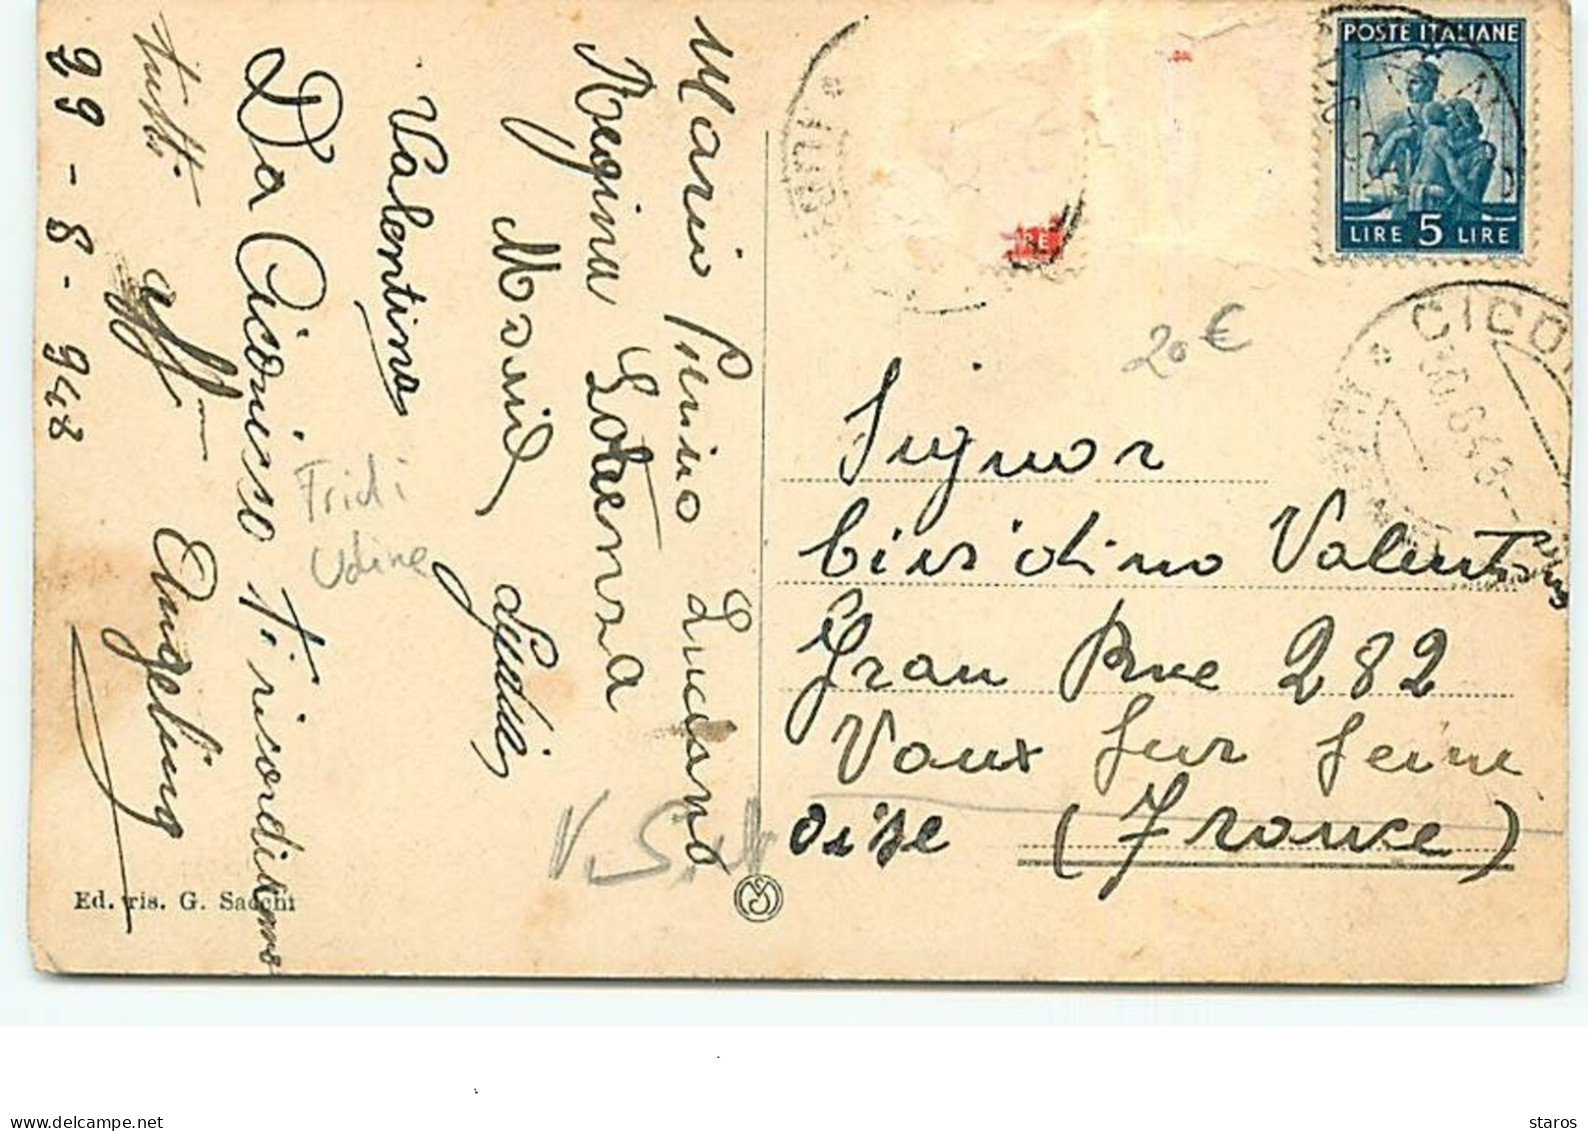 29-8-948
Da Ciconisso Ti ricordiamo
tutti aff
Angelina
Valentina
Maria Lydia
Regina
Mario Luciano
Fridi
Udine
V. S.
Ed. ris. G. Sacchi
POSTE ITALIANE
LIRE 5 LIRE
RE
CICO
30.8.48
20 €
Signor
Cividino Valentino
Gran Rue 282
Vaux Sur Seine
oise (France)
www.delcampe.net
staros